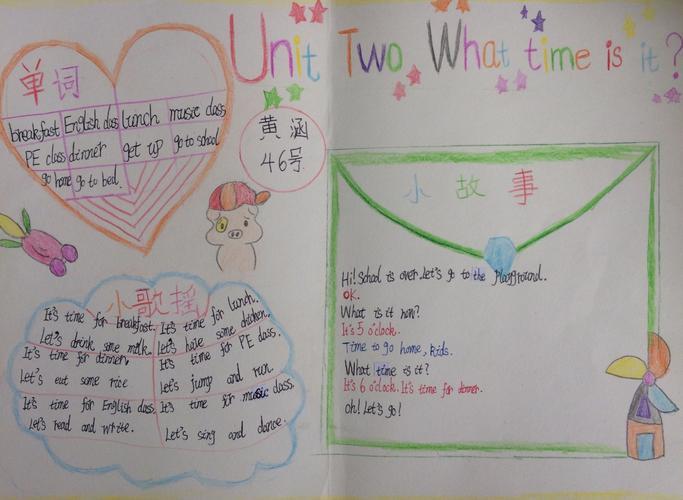 Unit Two What time is it?
单词
breakfast English class lunch music class
PE class dinner get up go to school
go home go to bed.
黄涵
46号
小歌摇
It's time for breakfast.
Let's drink some milk.
It's time for lunch.
Let's have some chicken.
It's time for dinner.
Let's eat some rice
It's time for PE class.
Let's jump and run.
It's time for English class.
Let's read and write.
It's time for music class.
Let's sing and dance.
小故事
Hi! School is over. Let's go to the playground.
OK.
What is it now?
It's 5 o'clock.
Time to go home, kids.
What time is it?
It's 6 o'clock. It's time for dinner.
oh! Let's go!